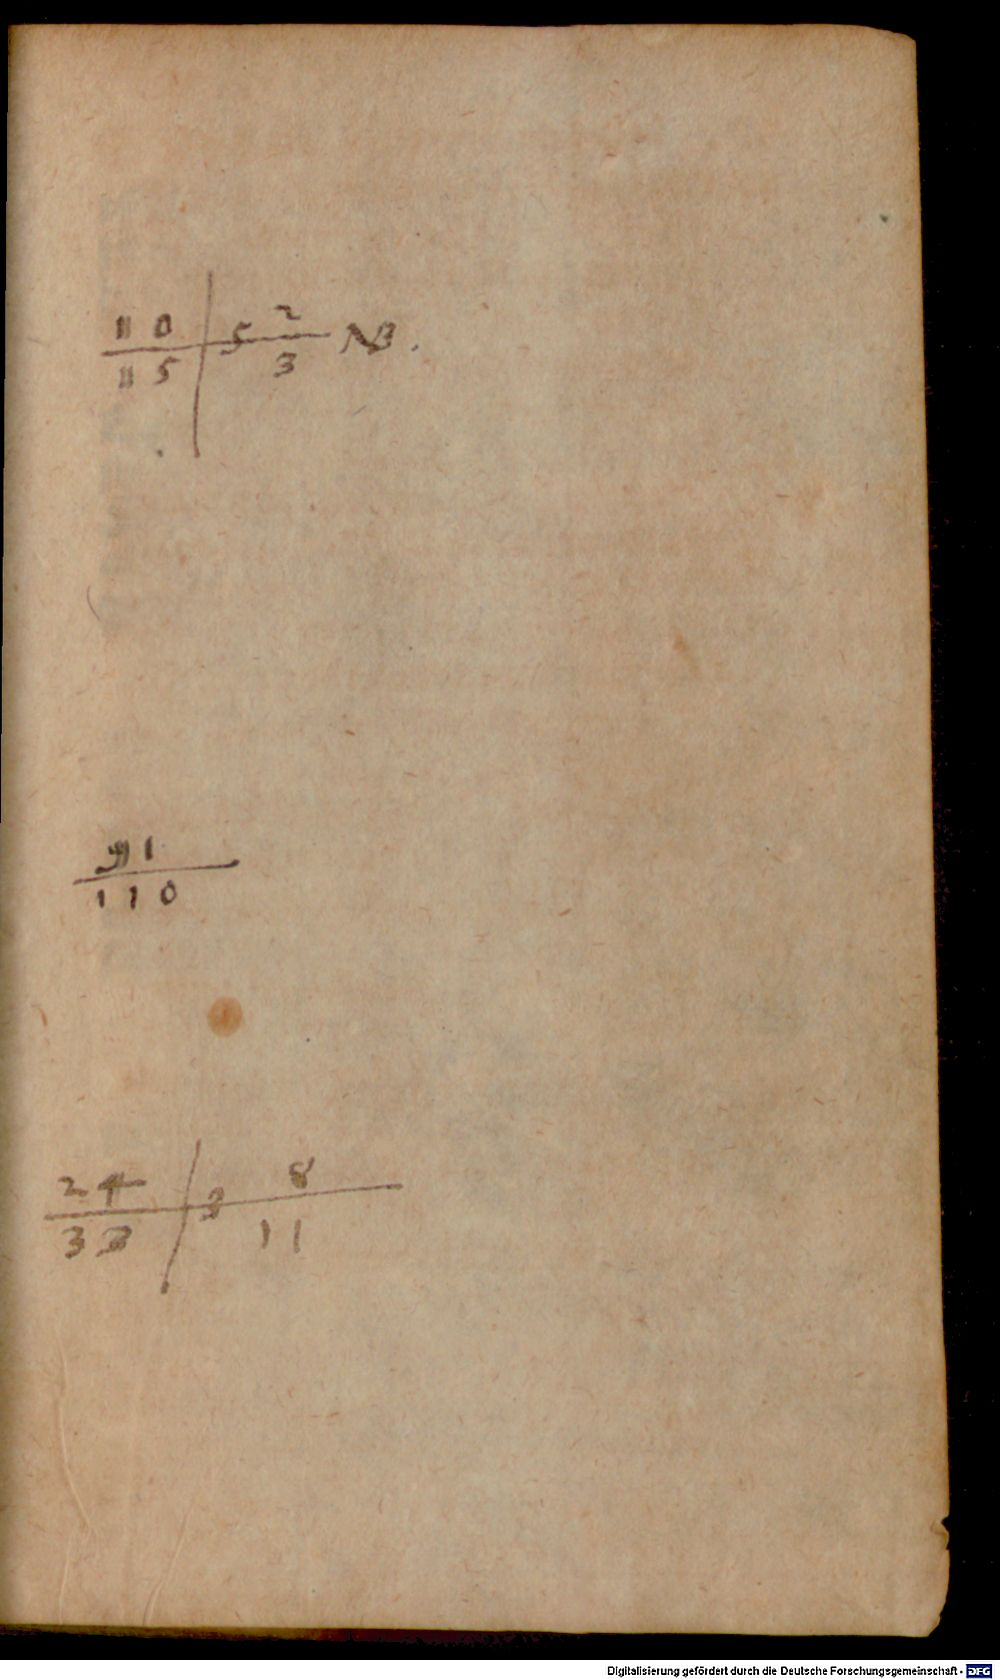 10 | 5 2 NB.
15 | 3
91
110
24 | 3 8
33 | 11
Digitalisierung gefördert durch die Deutsche Forschungsgemeinschaft - DFG